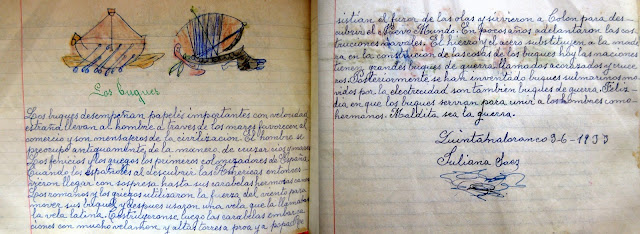 Los buques
Los buques desempeñan papeles importantes con velocidad
estraña llevan al hombre a traves de los mares favorecen al
comercio y son mensageros de la civilización. El hombre se
preocupó antiguamente, de la manera, de cruzar rios y mares
Los fenicios y los griegos los primeros colonizadores de España
Cuando los españoles al descubrir las Américas entonces
vieron llegar con sospresa hasta sus carabelas hermosas
Los romanos y los griegos utilisaron la fuerza del viento para
mover sus buques y despues usaron una vela que la llamaban
la vela latina. Costruyeronse luego las carabelas embarca
ciones con mucho velamen y altas torres a proa y a popa
sistian el furor de las olas y sirvieron a Colón para des-
cubrir el Nuevo Mundo. En pocos años adelantaron las cos
truciones navales. El hierro y el asero substituyen a la made
ra en la construcion de las cosas de los buques hoy las naciones
tienen grandes buques de guerra llamados acorazados y cruce
ros. Posteriormente se han inventado buques submarinos mo
vidos por la electricidad son tambien buques de guerra. Feliz
dia en que los buques servran para unir a los hombres como
hermanos. Maldita sea la guerra.
Quintanaloranco 3-6-1933
Juliana Saez